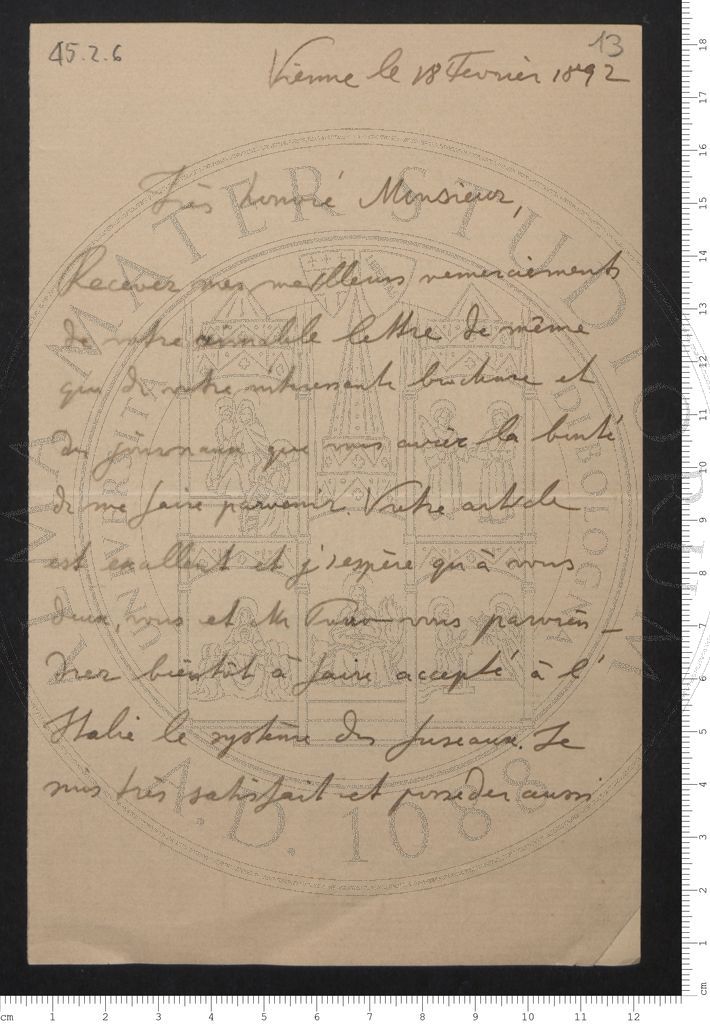 45.2.6
13
Vienne le 18 Fevrier 1892
Très honoré Monsieur,
Recever mes meilleurs remerciements
de votre aimable lettre de même
que de votre interessante brochure et
des journaux que vous aviez la bonté
de me faire parvenir. Votre article
est excellent et j'espère qu'à vous
deux, vous et Mr vous parvien-
drez bientôt à faire accepté à l'
Italie le système des fuseaux. Je
suis très satisfait et posseder aussi
ALMA MATER STUDIORUM
UNIVERSITÀ DI BOLOGNA
A.D. 1088
cm 1 2 3 4 5 6 7 8 9 10 11 12
cm 1 2 3 4 5 6 7 8 9 10 11 12 13 14 15 16 17 18